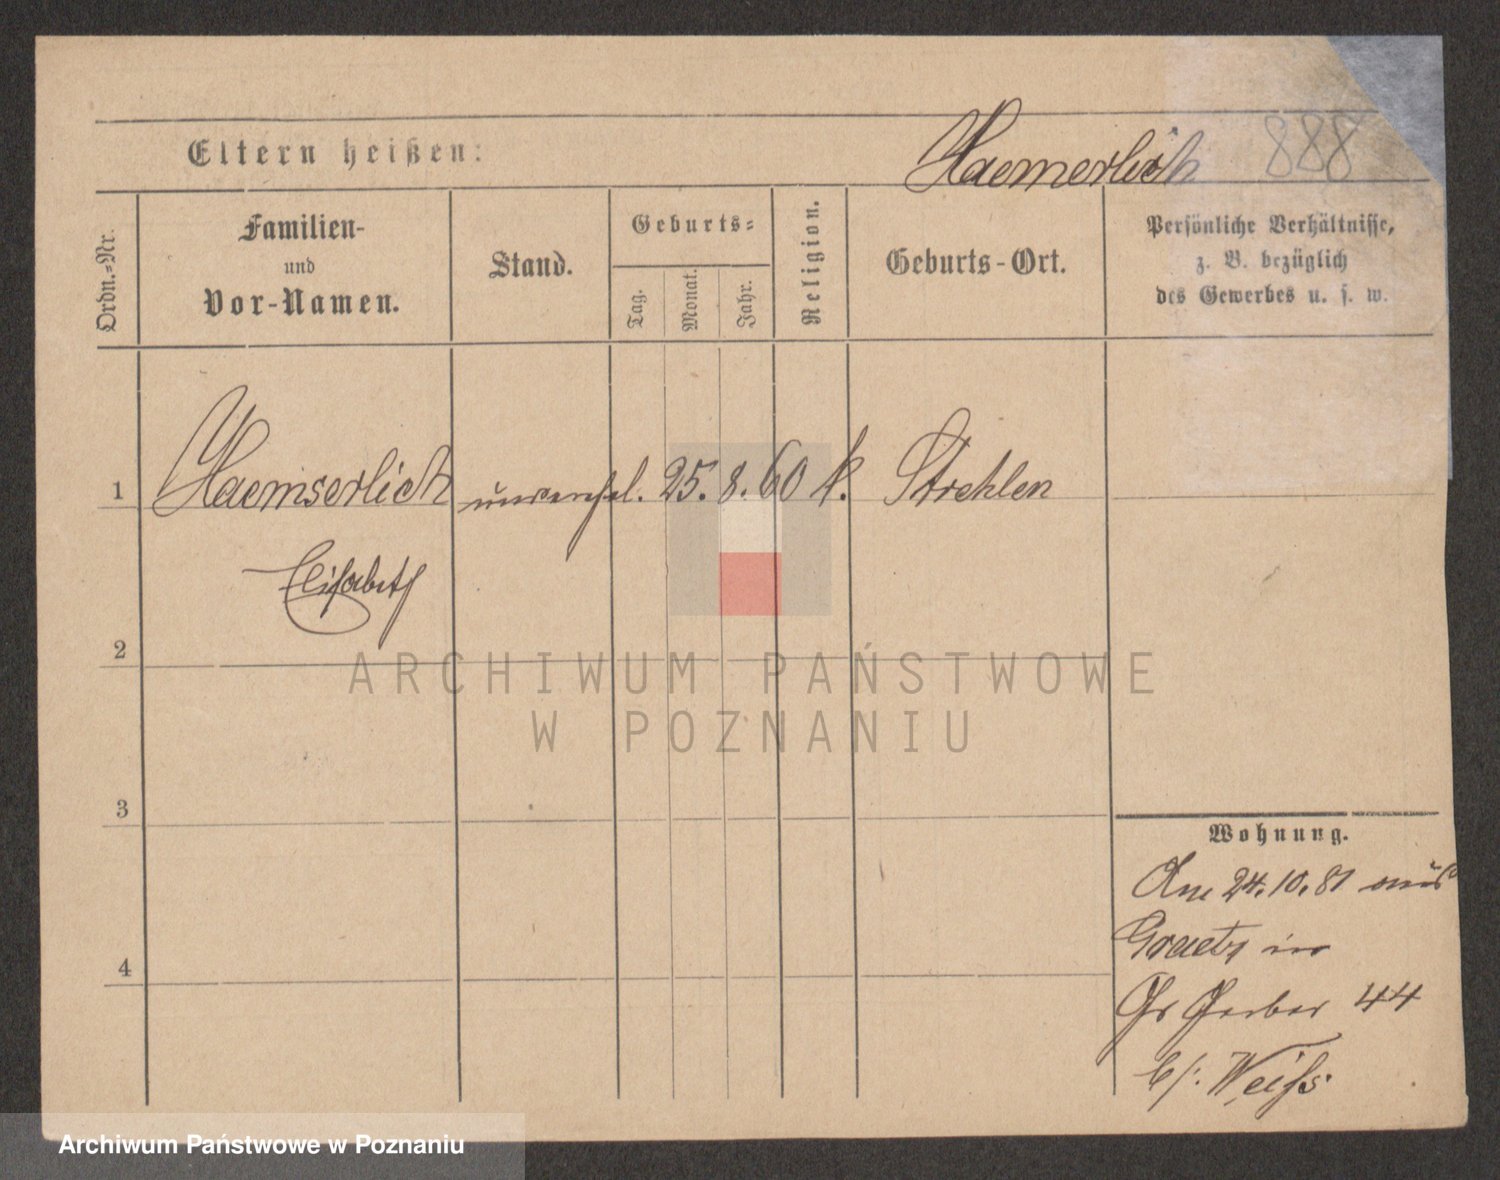 Eltern heißen:
Haemerlich 888
Ordn.-Nr.
Familien-
und
Vor-Namen.
Stand.
Geburts-
Tag.
Monat.
Jahr.
Religion.
Geburts-Ort.
Persönliche Verhältnisse,
z. B. bezüglich
des Gewerbes u. s. w.
1 Haemserlich unverehel. 25. 8. 60 k. Strehlen
Elisabeth
2
3
4
Wohnung.
Am 24. 10. 81 aus
Graetz in
Gr Gerber 44
b/. Weiß.
ARCHIWUM PAŃSTWOWE
W POZNANIU
Archiwum Państwowe w Poznaniu